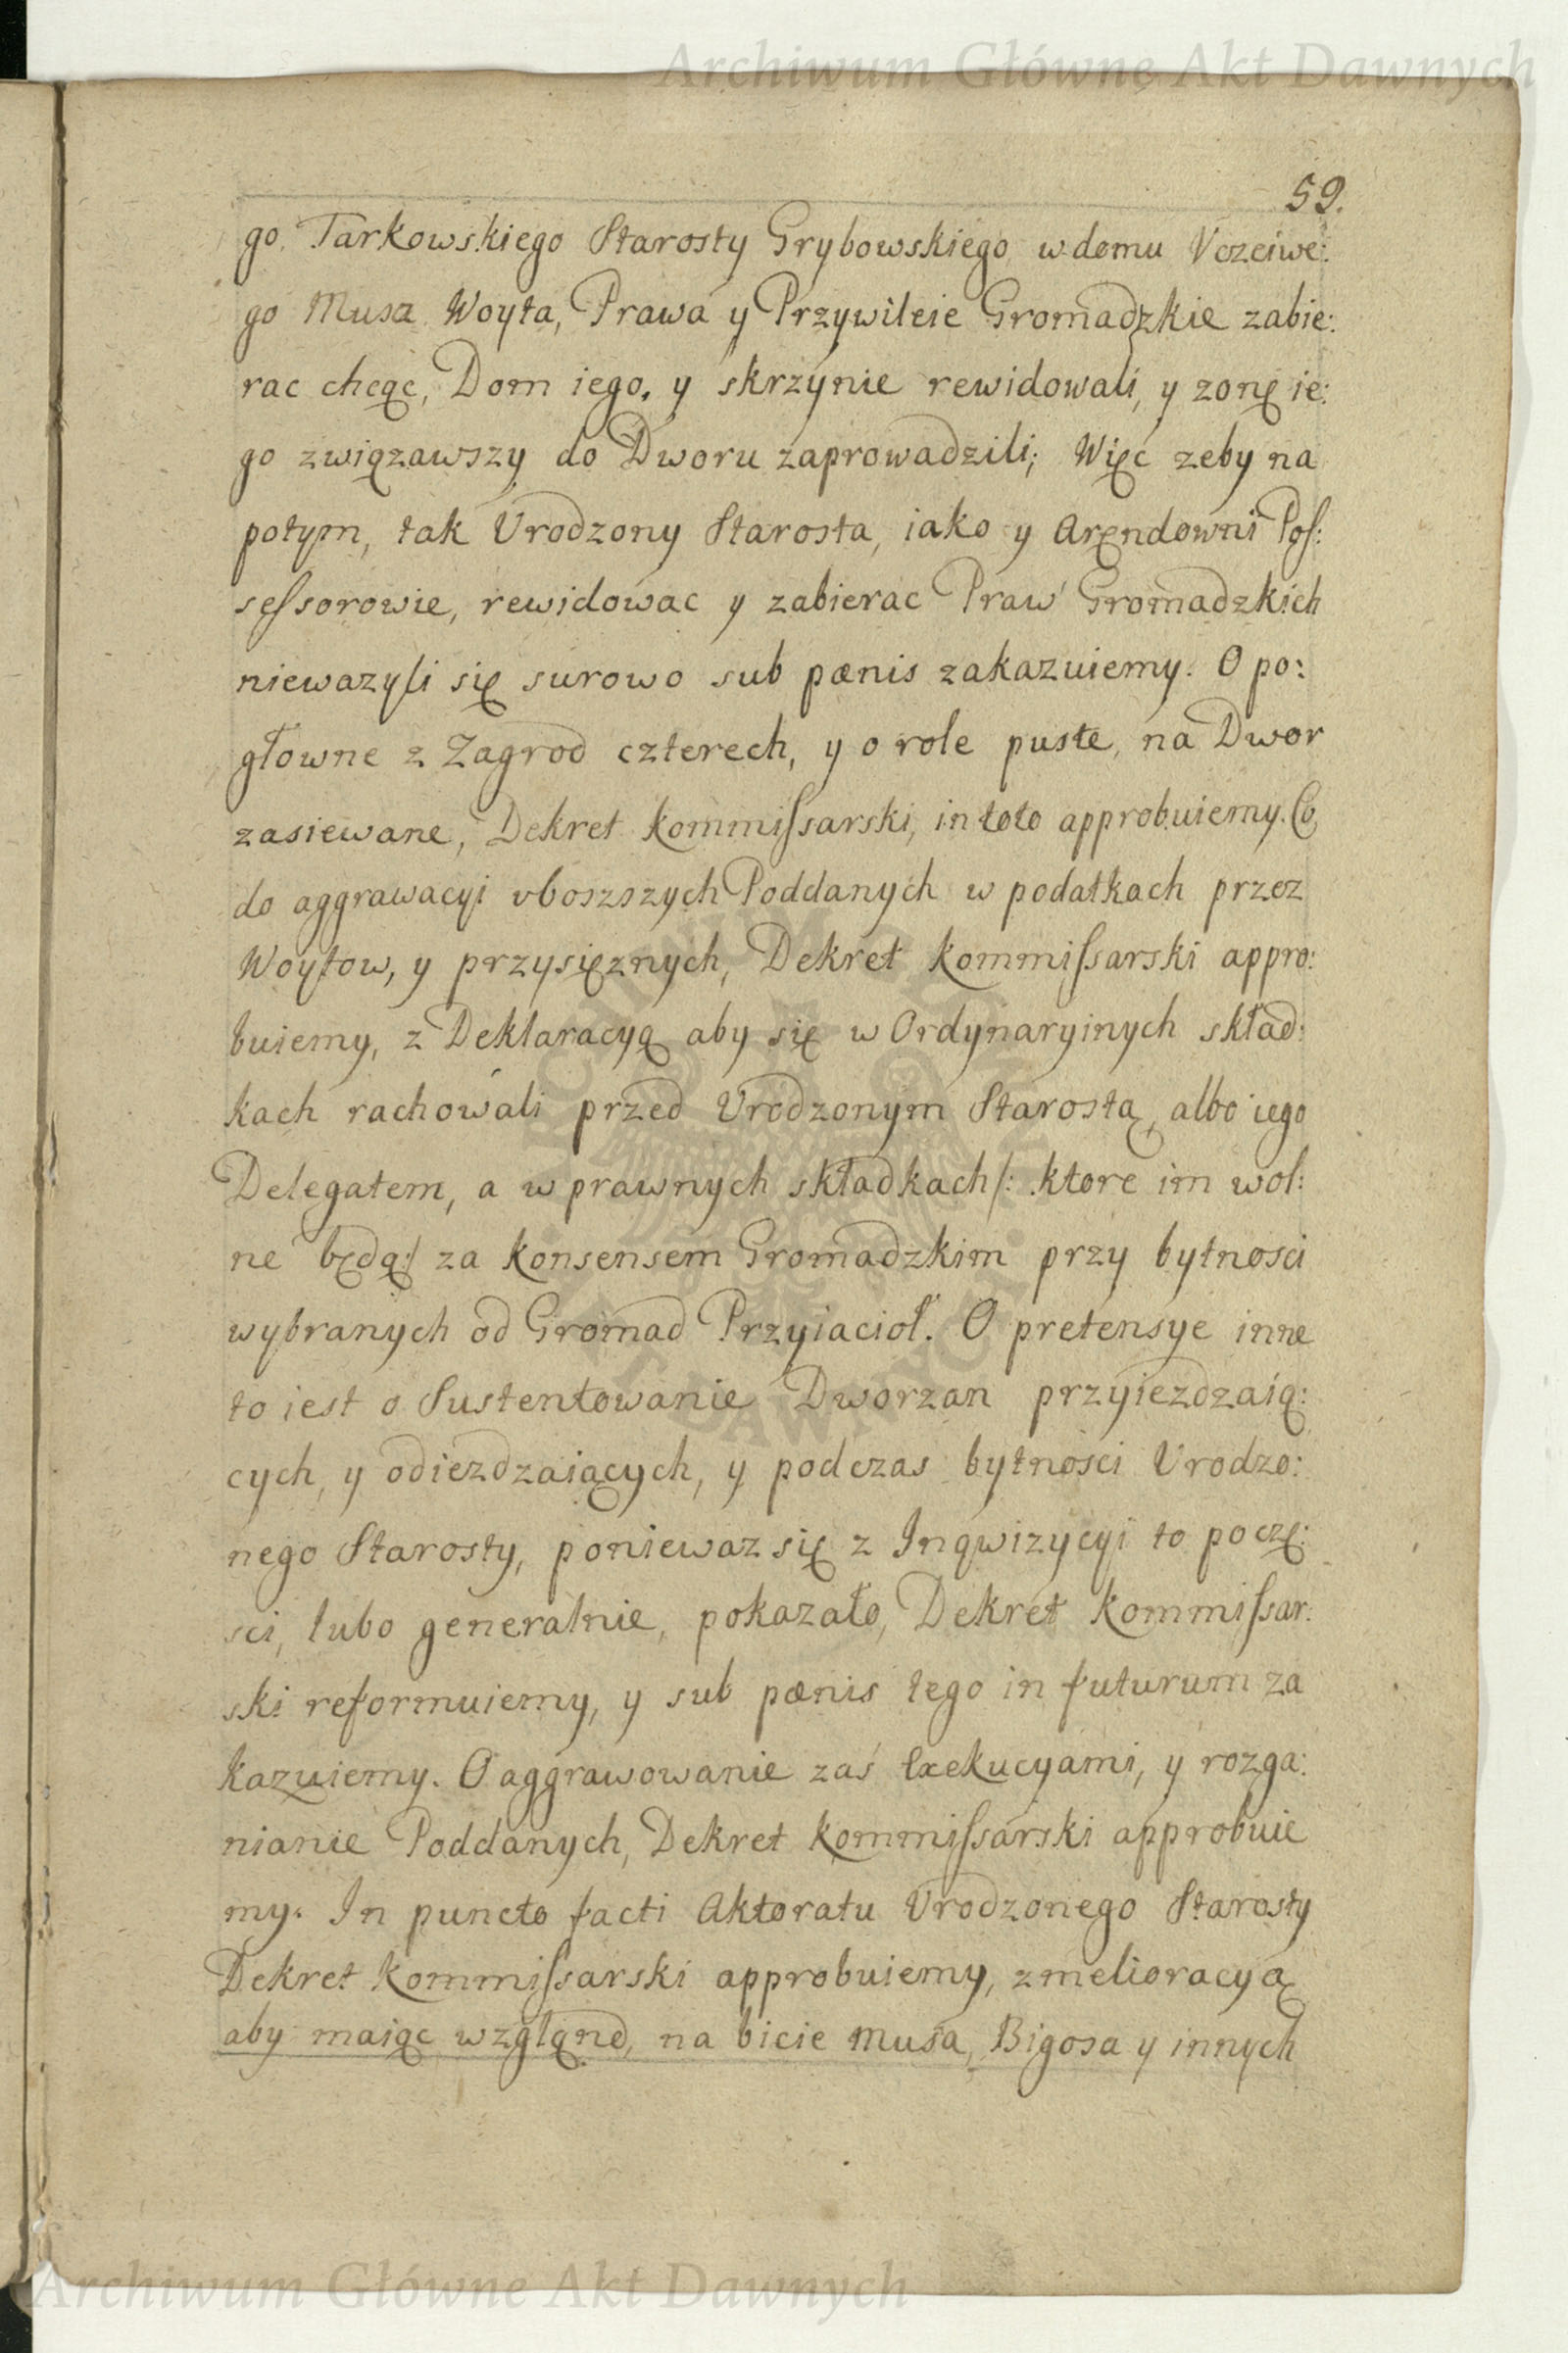 Archiwum Główne Akt Dawnych
59.
go Tarkowskiego Starosty Grybowskiego w domu Vczciwe:
go Musa Woyta, Prawa y Przywileie Gromadzkie zabie:
rac chcąc, Dom iego, y skrzynie rewidowali, y zonę ie:
go związawszy do Dworu zaprowadzili; Więc zeby na
potym, tak Vrodzony Starosta, iako y Arendowni Pos:
sessorowie, rewidowac y zabierac Praw Gromadzkich
niewazyli się surowo sub pœnis zakazuiemy. O po:
głowne z Zagrod czterech, y o role puste, na Dwor
zasiewane, Dekret Kommissarski, in toto approbuiemy. Co
do aggrawacyi vboszszych Poddanych w podatkach przez
Woytow, y przysięznych, Dekret Kommissarski appro:
buiemy, z Deklaracyą aby się w Ordynaryinych skład:
kach rachowali przed Vrodzonym Starostą, albo iego
Delegatem, a w prawnych składkach /: ktore im wol:
ne będą:/ za Konsensem Gromadzkim przy bytnosci
wybranych od Gromad Przyiacioł. O pretensye inne
to iest o Sustentowanie Dworzan przyiezdzaią:
cych, y odiezdzaiących, y podczas bytnosci Vrodzo:
nego Starosty, poniewaz się z Inqwizycyi to poczę:
sci, lubo generalnie, pokazało, Dekret Kommissar:
ski reformuiemy, y sub pœnis tego in futurum za
kazuiemy. O aggrawowanie zaś Exekucyami, y rozga:
nianie Poddanych, Dekret Kommissarski approbuie
my. In puncto facti Aktoratu Vrodzonego Starosty
Dekret Kommissarski approbuiemy, z melioracyą
aby maiąc wzgląnd, na bicie Musa, Bigosa y innych
Archiwum Główne Akt Dawnych